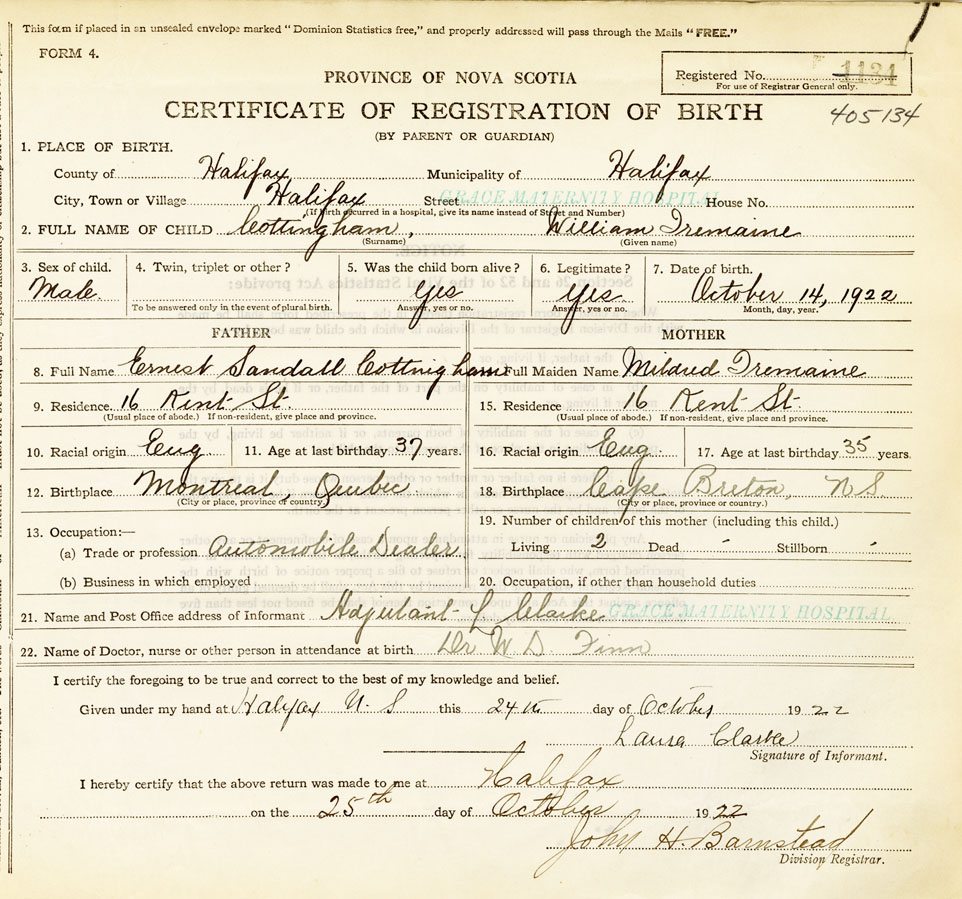 This form if placed in an unsealed envelope marked "Dominion Statistics free," and properly addressed will pass through the Mails "FREE."
FORM 4.
PROVINCE OF NOVA SCOTIA
Registered No. 1134
For use of Registrar General only.
CERTIFICATE OF REGISTRATION OF BIRTH
405134
(BY PARENT OR GUARDIAN)
1. PLACE OF BIRTH.
County of Halifax Municipality of Halifax
City, Town or Village Halifax Street GRACE MATERNITY HOSPITAL House No.
(If birth occurred in a hospital, give its name instead of Street and Number)
2. FULL NAME OF CHILD Cottingham, William Tremaine
(Surname) (Given name)
3. Sex of child. 4. Twin, triplet or other? 5. Was the child born alive? 6. Legitimate? 7. Date of birth.
Male. Yes Yes October 14, 1922
To be answered only in the event of plural birth. Answer, yes or no. Answer, yes or no. Month, day, year.
FATHER MOTHER
8. Full Name Ernest Sandall Cottingham Full Maiden Name Mildred Tremaine
9. Residence. 16 Kent St. 15. Residence 16 Kent St.
(Usual place of abode.) If non-resident, give place and province. (Usual place of abode.) If non-resident, give place and province.
10. Racial origin Eng 11. Age at last birthday 37 years. 16. Racial origin Eng. 17. Age at last birthday 35 years.
12. Birthplace Montreal, Quebec. 18. Birthplace Cape Breton, N S
(City or place, province or country) (City or place, province or country.)
13. Occupation:— 19. Number of children of this mother (including this child.)
(a) Trade or profession Automobile Dealer Living 2 Dead - Stillborn -
(b) Business in which employed 20. Occupation, if other than household duties
21. Name and Post Office address of Informant Adjutant L Clarke GRACE MATERNITY HOSPITAL
22. Name of Doctor, nurse or other person in attendance at birth Dr W. D. Finn
I certify the foregoing to be true and correct to the best of my knowledge and belief.
Given under my hand at Halifax N. S this 24th day of October 1922
Laura Clarke
Signature of Informant.
I hereby certify that the above return was made to me at Halifax
on the 25th day of October 1922
John H. Barnstead
Division Registrar.